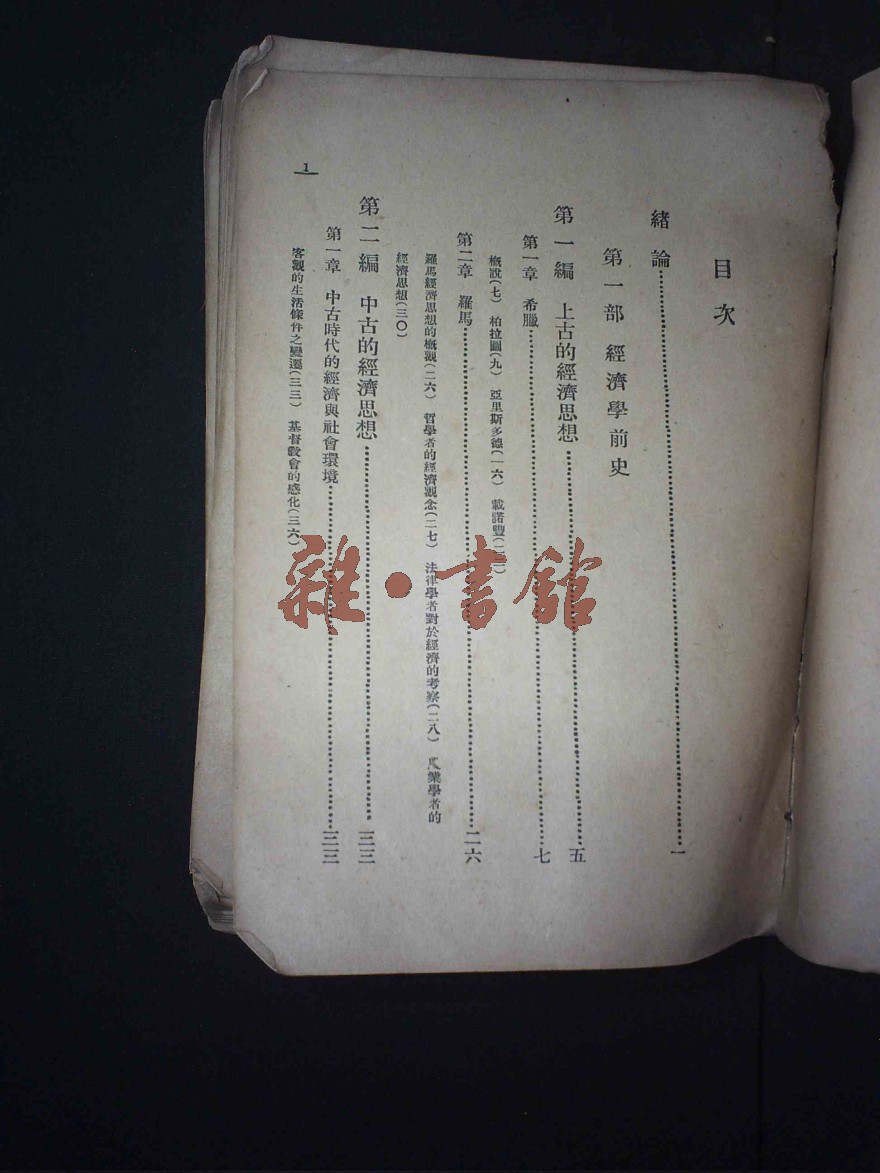 目次
緒論一
第一部 經濟學前史
第一編 上古的經濟思想五
第一章 希臘七
概說(七) 柏拉圖(九) 亞里斯多德(一六) 載諾豐
第二章 羅馬二六
羅馬經濟思想的概觀(二六) 哲學者的經濟觀念(二七) 法律學者對於經濟的考察(二八) 業學者的
經濟思想(三〇)
第二編 中古的經濟思想三三
第一章 中古時代的經濟與社會環境三三
客觀的生活條件之變遷(三三) 基督敎會的感化(三六)
1
雜·書館